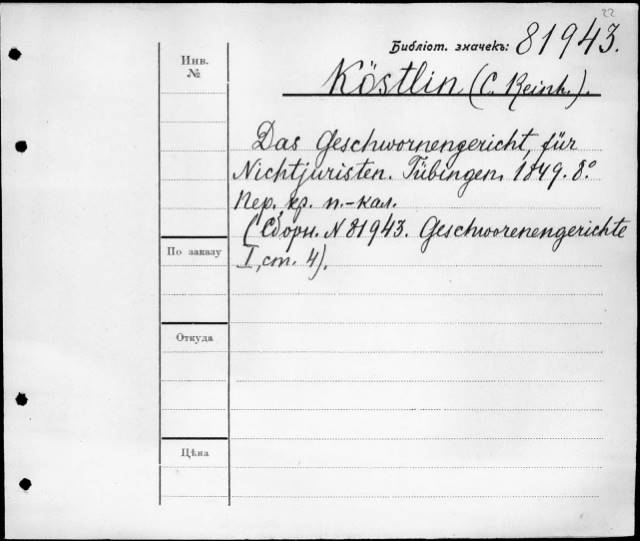 22
Библіот. значекъ: 81943.
Инв.
№
Köstlin (C. Reinh.).
Das Geschwornengericht, für
Nichtjuristen. Tübingen. 1849. 8.°
Пер. кр. п.-кал.
(Сборн. N 81943. Geschwoorenengerichte
По заказу
I, ст. 4).
Откуда
Цѣна